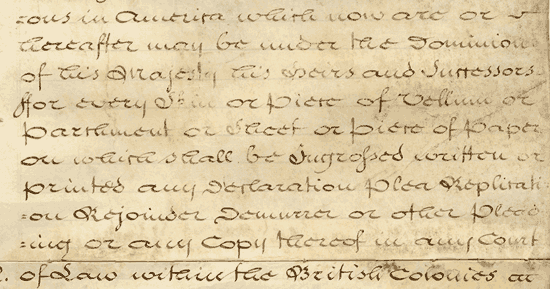 =tions in America which now are or
thereafter may be under the Dominions
of his Majesty his Heirs and Successors
ffor every Skin or Piece of Vellum or
Parchment or Sheet or Piece of Paper
on which shall be Ingrossed written or
printed any Declaration Plea Replicati
=on Rejoinder Demurrer or other Plead
=ing or any Copy thereof in any Court
of Law within the British Colonies an